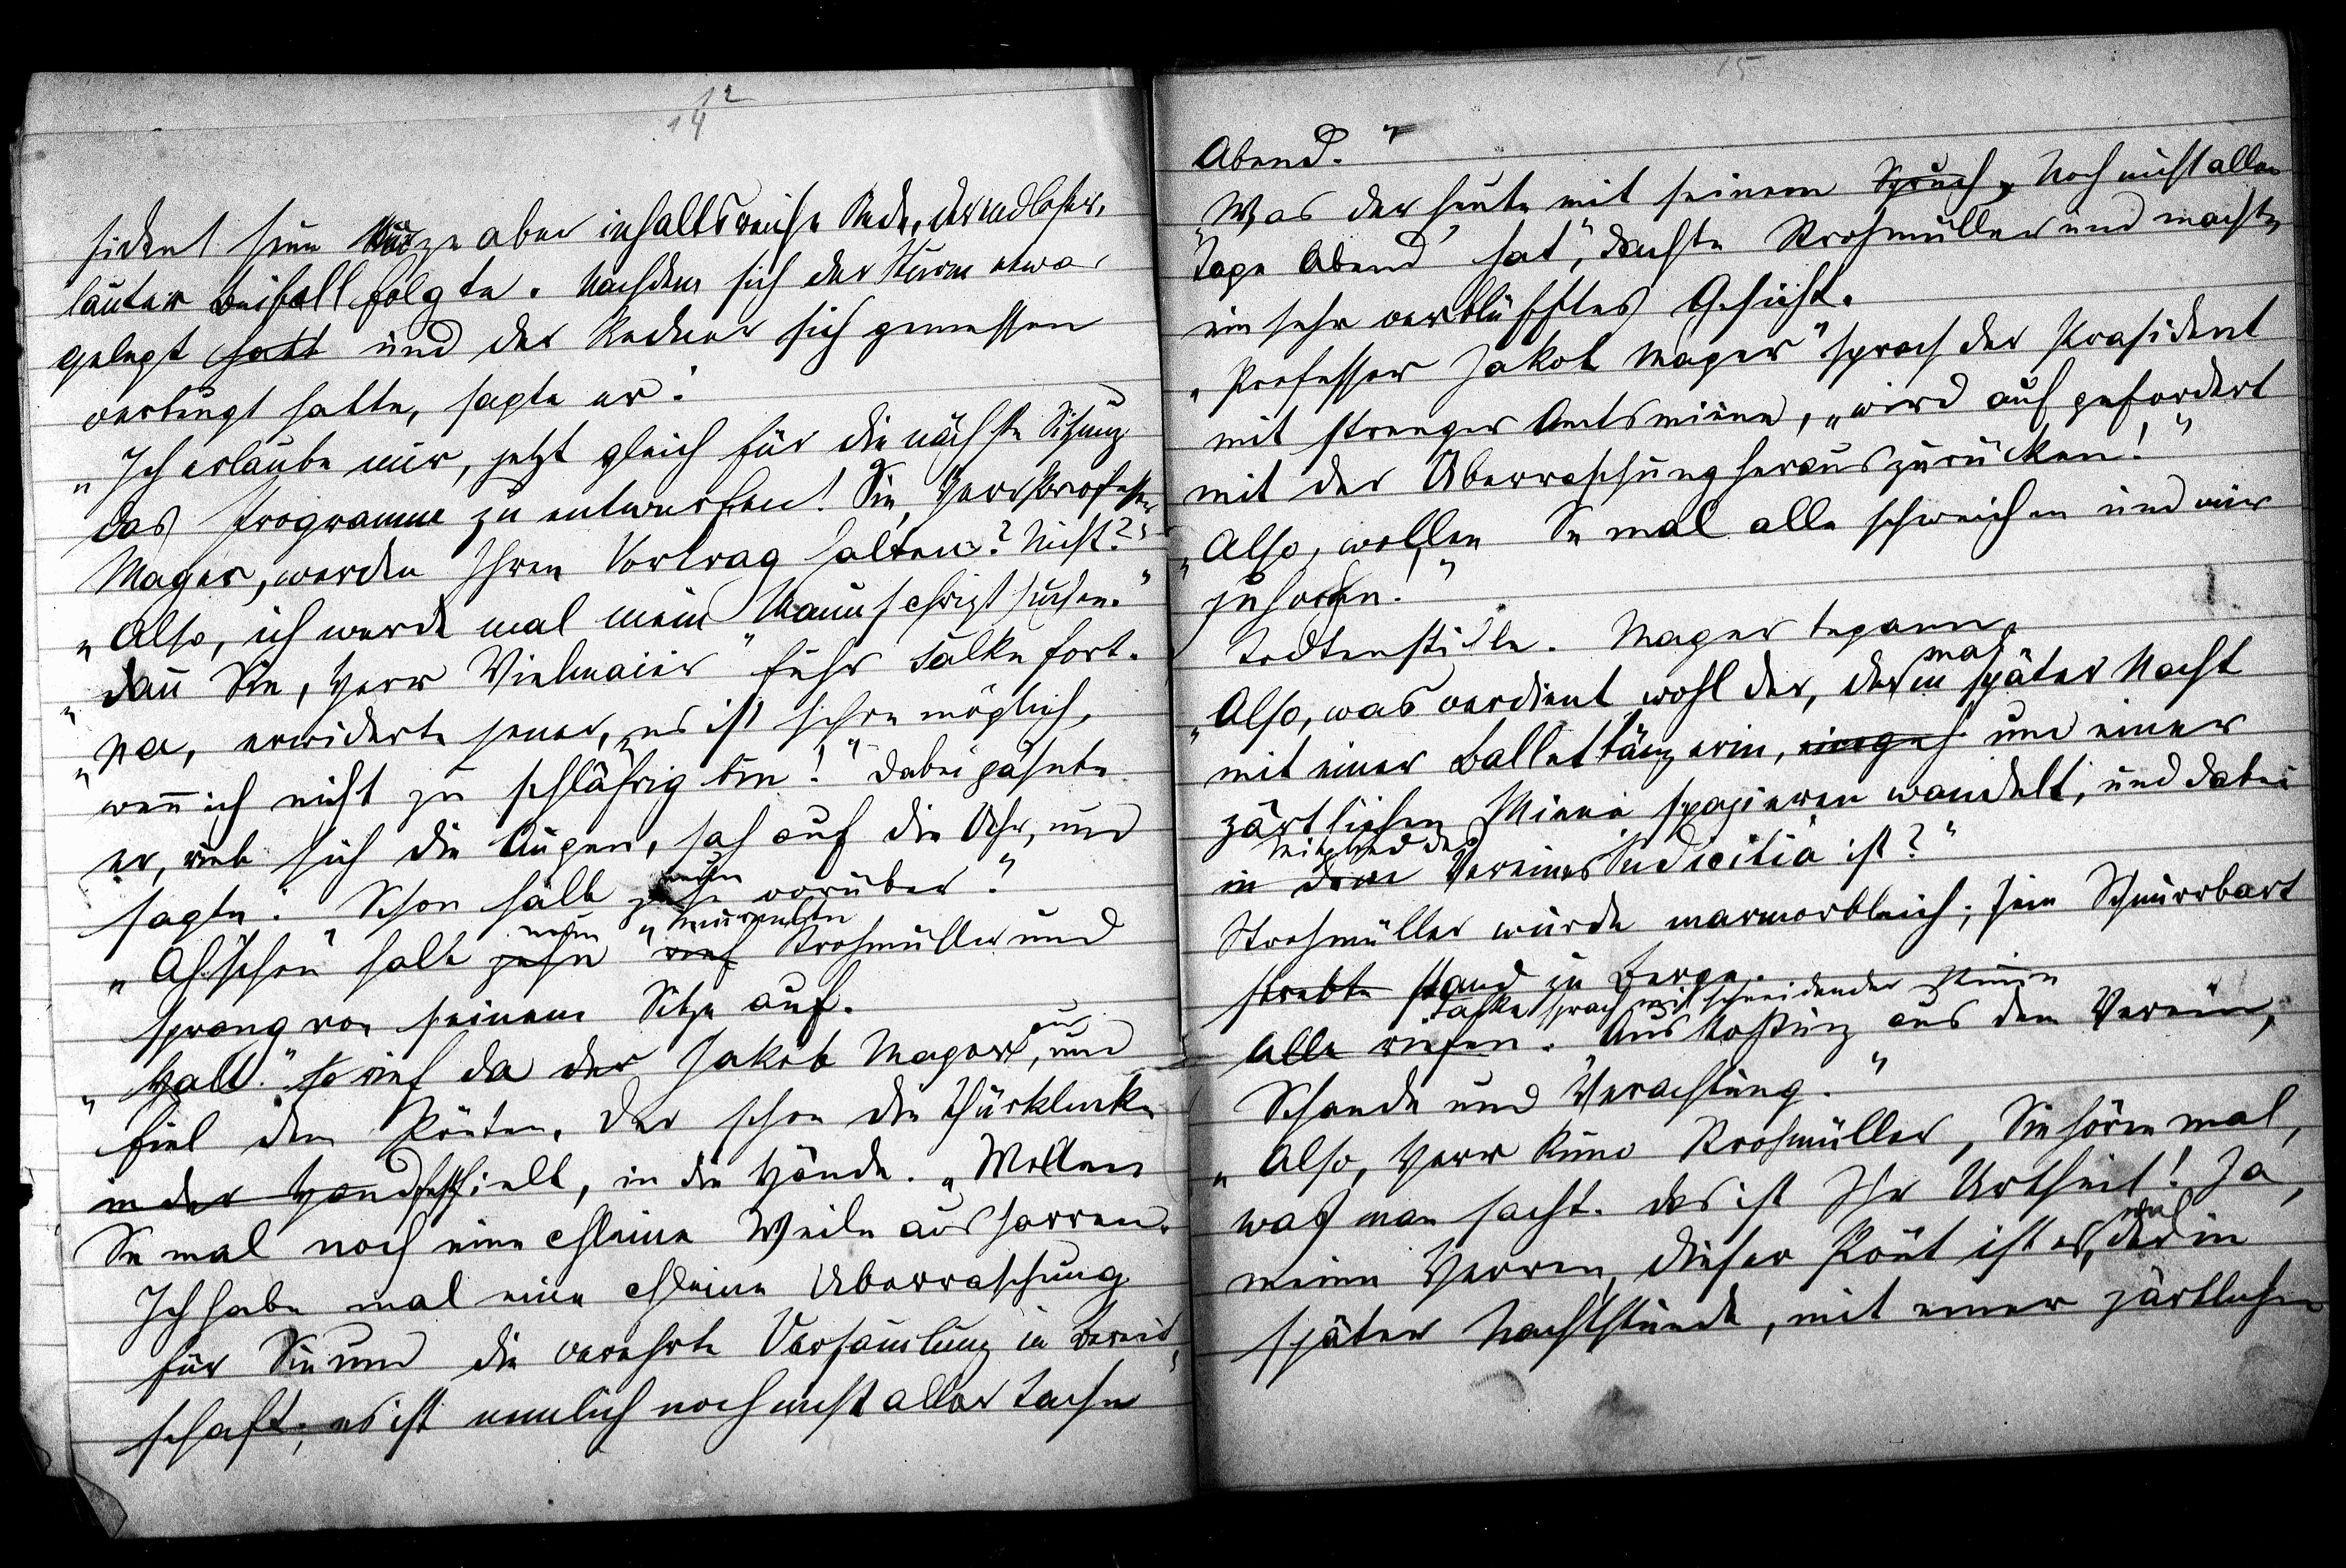 12
14
sident seine kurze aber inhaltsreiche Rede, der endloser,
lauter Beifall folgte. Nachdem sich der Sturm etwas
gelegt hatt und der Redner sich gemessen
verbeugt hatte, sagte er:
„Ich erlaube mir, jetzt gleich für die nächste Sitzung
das Programme zu entwerfen! Sie, Herr Professor
Mager, werden Ihren Vortrag halten? Nicht?"
„Also, ich werde mal mein Manuschript suchen."
„Dann Sie, Herr Vielmaier" fuhr Salke fort.
„Na, erwiderte jener, „es ist schon möglich,
wenn ich nicht zu schläfrig bin!" Dabei gähnte
er, rieb sich die Augen, sah auf die Uhr, und
sagte: „Schon halb zehn neun vorüber."
„Ah schon halb zehn neun" rief murmelte Strohmüller und
sprang von seinem Sitze auf.
„Halt." so rief da der Jakob Mager aus, und
fiel dem Poëten, der schon die Thürklinke
in der Hand festhielt, in die Hände. „Wollen
Se mal noch eine chleine Weile ausharren.
Ich habe mal eine chleine Überraschung
für Sie und die verehrte Versamlung in Bereit-
schaft; es ist nemlich noch nicht aller Tache
15
Abend."
„Was der heute mit seinem Spruch „Noch nicht aller
Tage Abend" hat", dachte Strohmüller und machte
ein sehr verblüfftes Gesicht.
„Professor Jakob Mager" sprach der Präsident
mit strenger Amtsmiene, „wird aufgefordert
mit der Überraschung herauszurücken!"
„Also, wollen Se mal alle schweichen und mir
zuhören!"
Todtenstille. Mager begann,
„Also, was verdient wohl der, der mal in später Nacht
mit einer Ballettänzerin, eingeh und einer
zärtlichen Miene spazieren wandelt, und dabei
in dem Mitglied des Vereines Pudicitia ist?"
Strohmüller wurde marmorbleich; sein Schnurrbart
strebte stand zu Berge.
Alle riefen: Salke sprach mit schneidender Miene „Ausstoßung aus dem Verein,
Schande und Verachtung."
„Also, Herr Kuno Strohmüller, Sie hören mal,
was man sacht. Das ist Ihr Urtheil! Ja,
meine Herren, dieser Poët ist es, der mal in
später Nachtstunde, mit einer zärtlichen